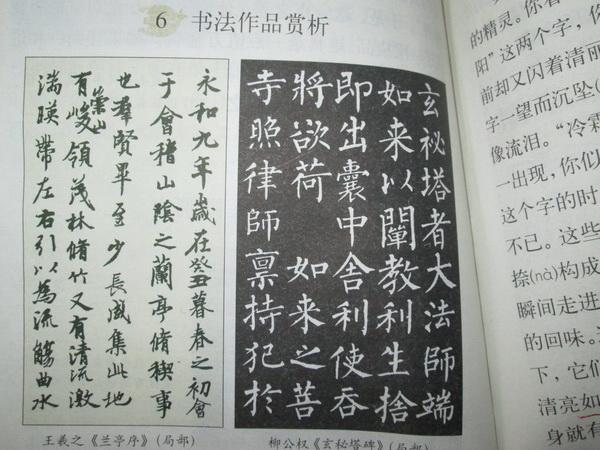 6 书法作品赏析
永和九年歲在癸丑暮春之初會
于會稽山陰之蘭亭脩稧事
也羣賢畢至少長咸集此地
有崇山峻領茂林脩竹又有清流激
湍暎帶左右引以為流觴曲水
王羲之《兰亭序》(局部)
玄祕塔者大法師端
如来以闡教利生捨
即出囊中舍利使吞
將欲荷 如来之菩
寺照律師稟持犯於
柳公权《玄秘塔碑》(局部)
的精灵。你看
阳”这两个字，你
前却又闪着清丽
字一望而沉坠
像流泪。“冷霜
一出现，你们
这个字的时
不已。这些
捺(nà)构成
瞬间走进
的回味。
下，它们
清亮如
身就有